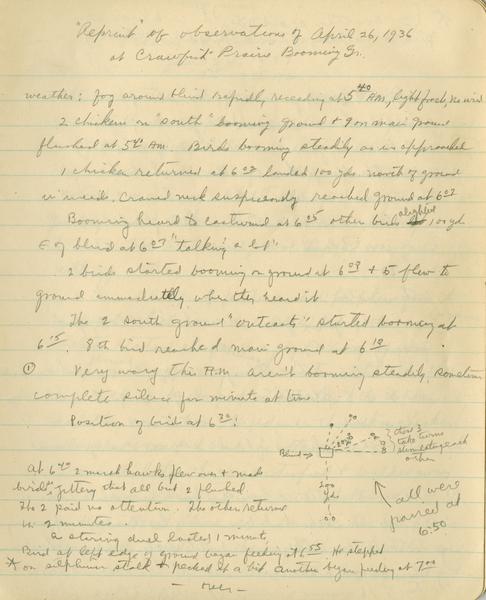 "Reprint" of observations of April 26, 1936
at Crawfish Prairie Booming Gr.
weather: fog around blind rapidly receding at 5 40 AM, light frost, no wind
2 chickens on "south" booming ground + 9 on main ground
flushed at 5 40 AM. Birds booming steadily as we approached
1 chicken returned at 6 03 landed 100 yds. north of ground
in weeds. Craned neck suspiciously reached ground at 6 07
Booming heard to eastward at 6 05 other birds alighted 100 yd
E of blind at 6 07 "talking a lot"
2 birds started booming on ground at 6 09 + 5 flew to
ground immediately when they heard it
The 2 south ground "outcasts" started booming at
6 15. 8th bird reached main ground at 6 18
① Very wary this A.M. aren't booming steadily, sometimes
complete silence for minute at time
Position of birds at 6 30:
Blind
200
yds
these 3
take turns
stimulating each
other
all were
paired at
6:50
At 6 40 2 marsh hawks flew over + made
birds jittery that all but 2 flushed
The 2 paid no attention. The others returned
in 2 minutes.
a staring duel lasted 1 minute
Bird at left edge of ground began feeding at 6 55. He stepped
* on silphium stalk + pecked at a bit another began feeding at 7 00
— over —